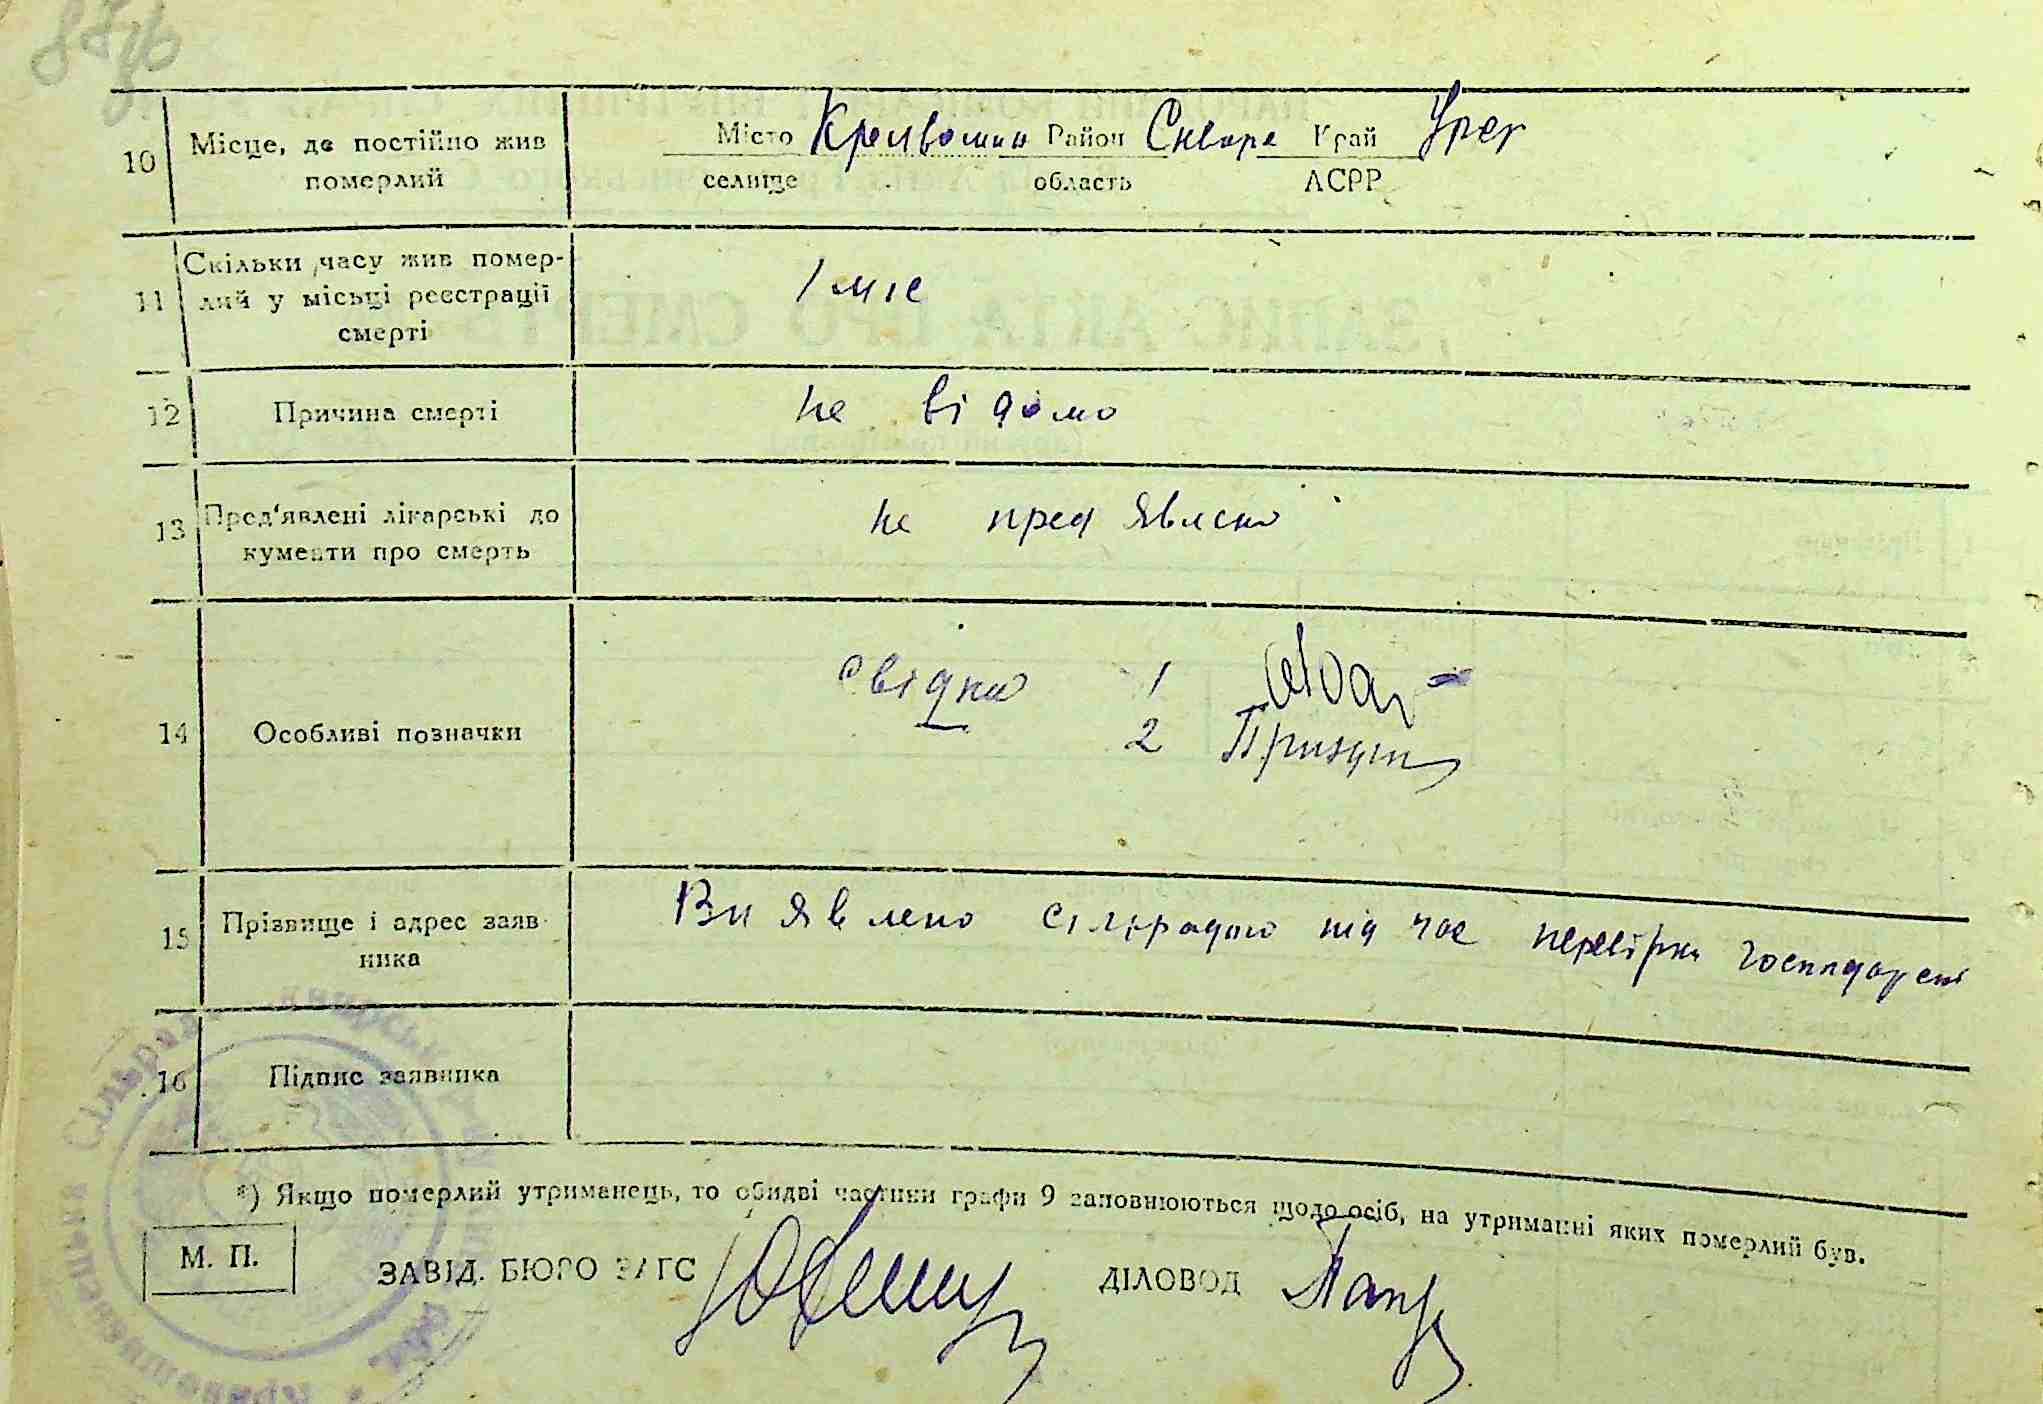 10 Місце, де постійно жив Місто Район Сквира Край Урср
померлий селище область АСРР
Скільки часу жив помер-
11 лий у місьці реєстрації 1 міс
смерті
12 Причина смерті не відомо
13 Пред'явлені лікарські до не пред явлено
кументи про смерть
свідки 1
14 Особливі позначки 2
15 Прізвище і адрес заяв- Ви явлено сілрадою під час перевірки
ника
16 Підпис заявника
*) Якщо померлий утриманець, то обидві частини графи 9 заповнюються щодо осіб, на утриманні яких померлий був.
М. П. ЗАВІД. БЮРО ЗАГС ДІЛОВОД